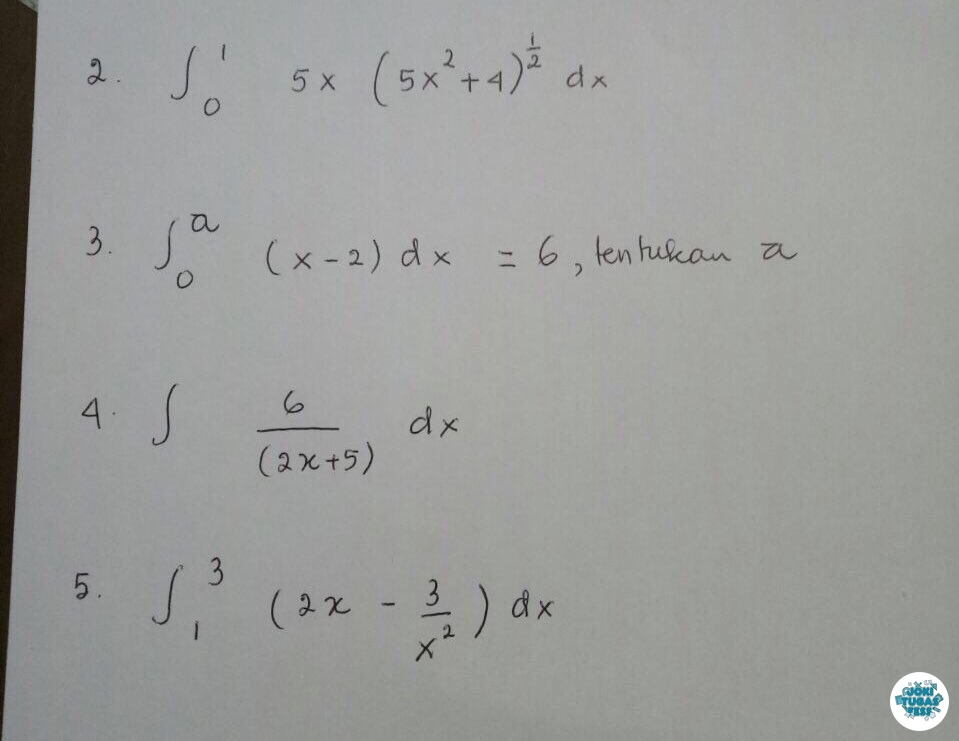 2. ∫₀¹ 5x (5x²+4)^½ dx
3. ∫₀ᵃ (x-2) dx = 6, tentukan a
4. ∫ 6/(2x+5) dx
5. ∫₁³ (2x - 3/x²) dx
JOKI
TUGAS
TESS